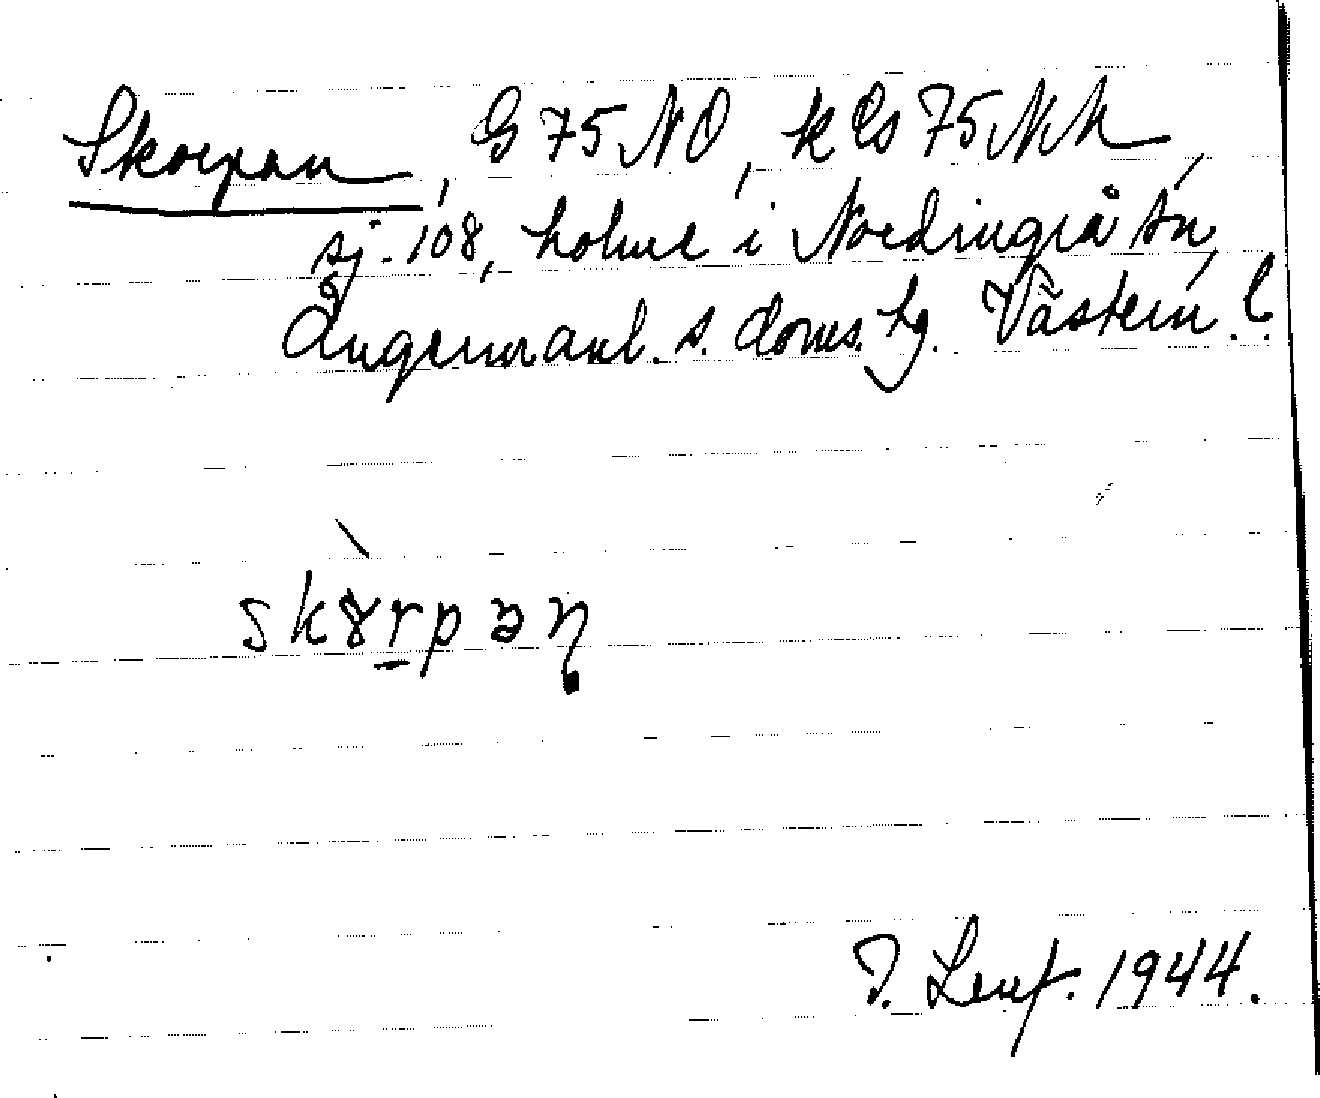 Skorpan, G 75 NO, k Gs 75 NK,
sj. 108, holme i Nordingrå sn,
Ångermanl. s. doms. hg. Västern. l.
skɤ̀rpən̩
I. Leuf. 1944.